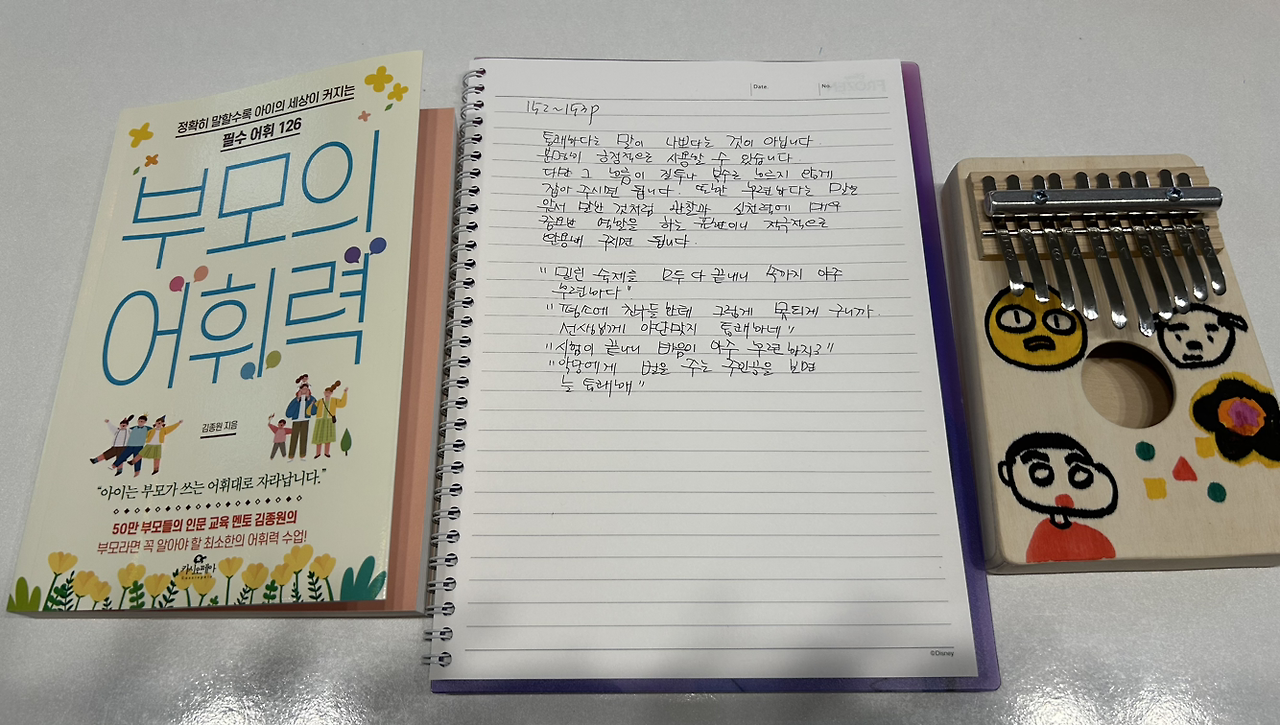 정확히 말할수록 아이의 세상이 커지는
필수 어휘 126
부모의
어휘력
김종원 지음
“아이는 부모가 쓰는 어휘대로 자라납니다.”
50만 부모들의 인문 교육 멘토 김종원의
부모라면 꼭 알아야 할 최소한의 어휘력 수업!
카시오페아
Cassiopeia
Date.
No.
152~153p
통쾌하다는 말이 나쁘다는 것이 아닙니다.
분명히 긍정적으로 사용할 수 있습니다.
다만 그 마음이 질투나 복수로 흐르지 않게
잡아 주시면 됩니다. 또한 후련하다는 말은
앞서 말한 것처럼 관찰과 실천력에 매우
중요한 역할을 하는 표현이니 적극적으로
활용해 주시면 됩니다.
"밀린 숙제를 모두 다 끝내니 속까지 아주
후련하다"
"평소에 친구들한테 그렇게 못되게 구니까.
선생님께 야단맞지 통쾌하네"
"시험이 끝나니 마음이 아주 후련하지?"
"악당에게 벌을 주는 주인공을 보면
늘 통쾌해"
©Disney